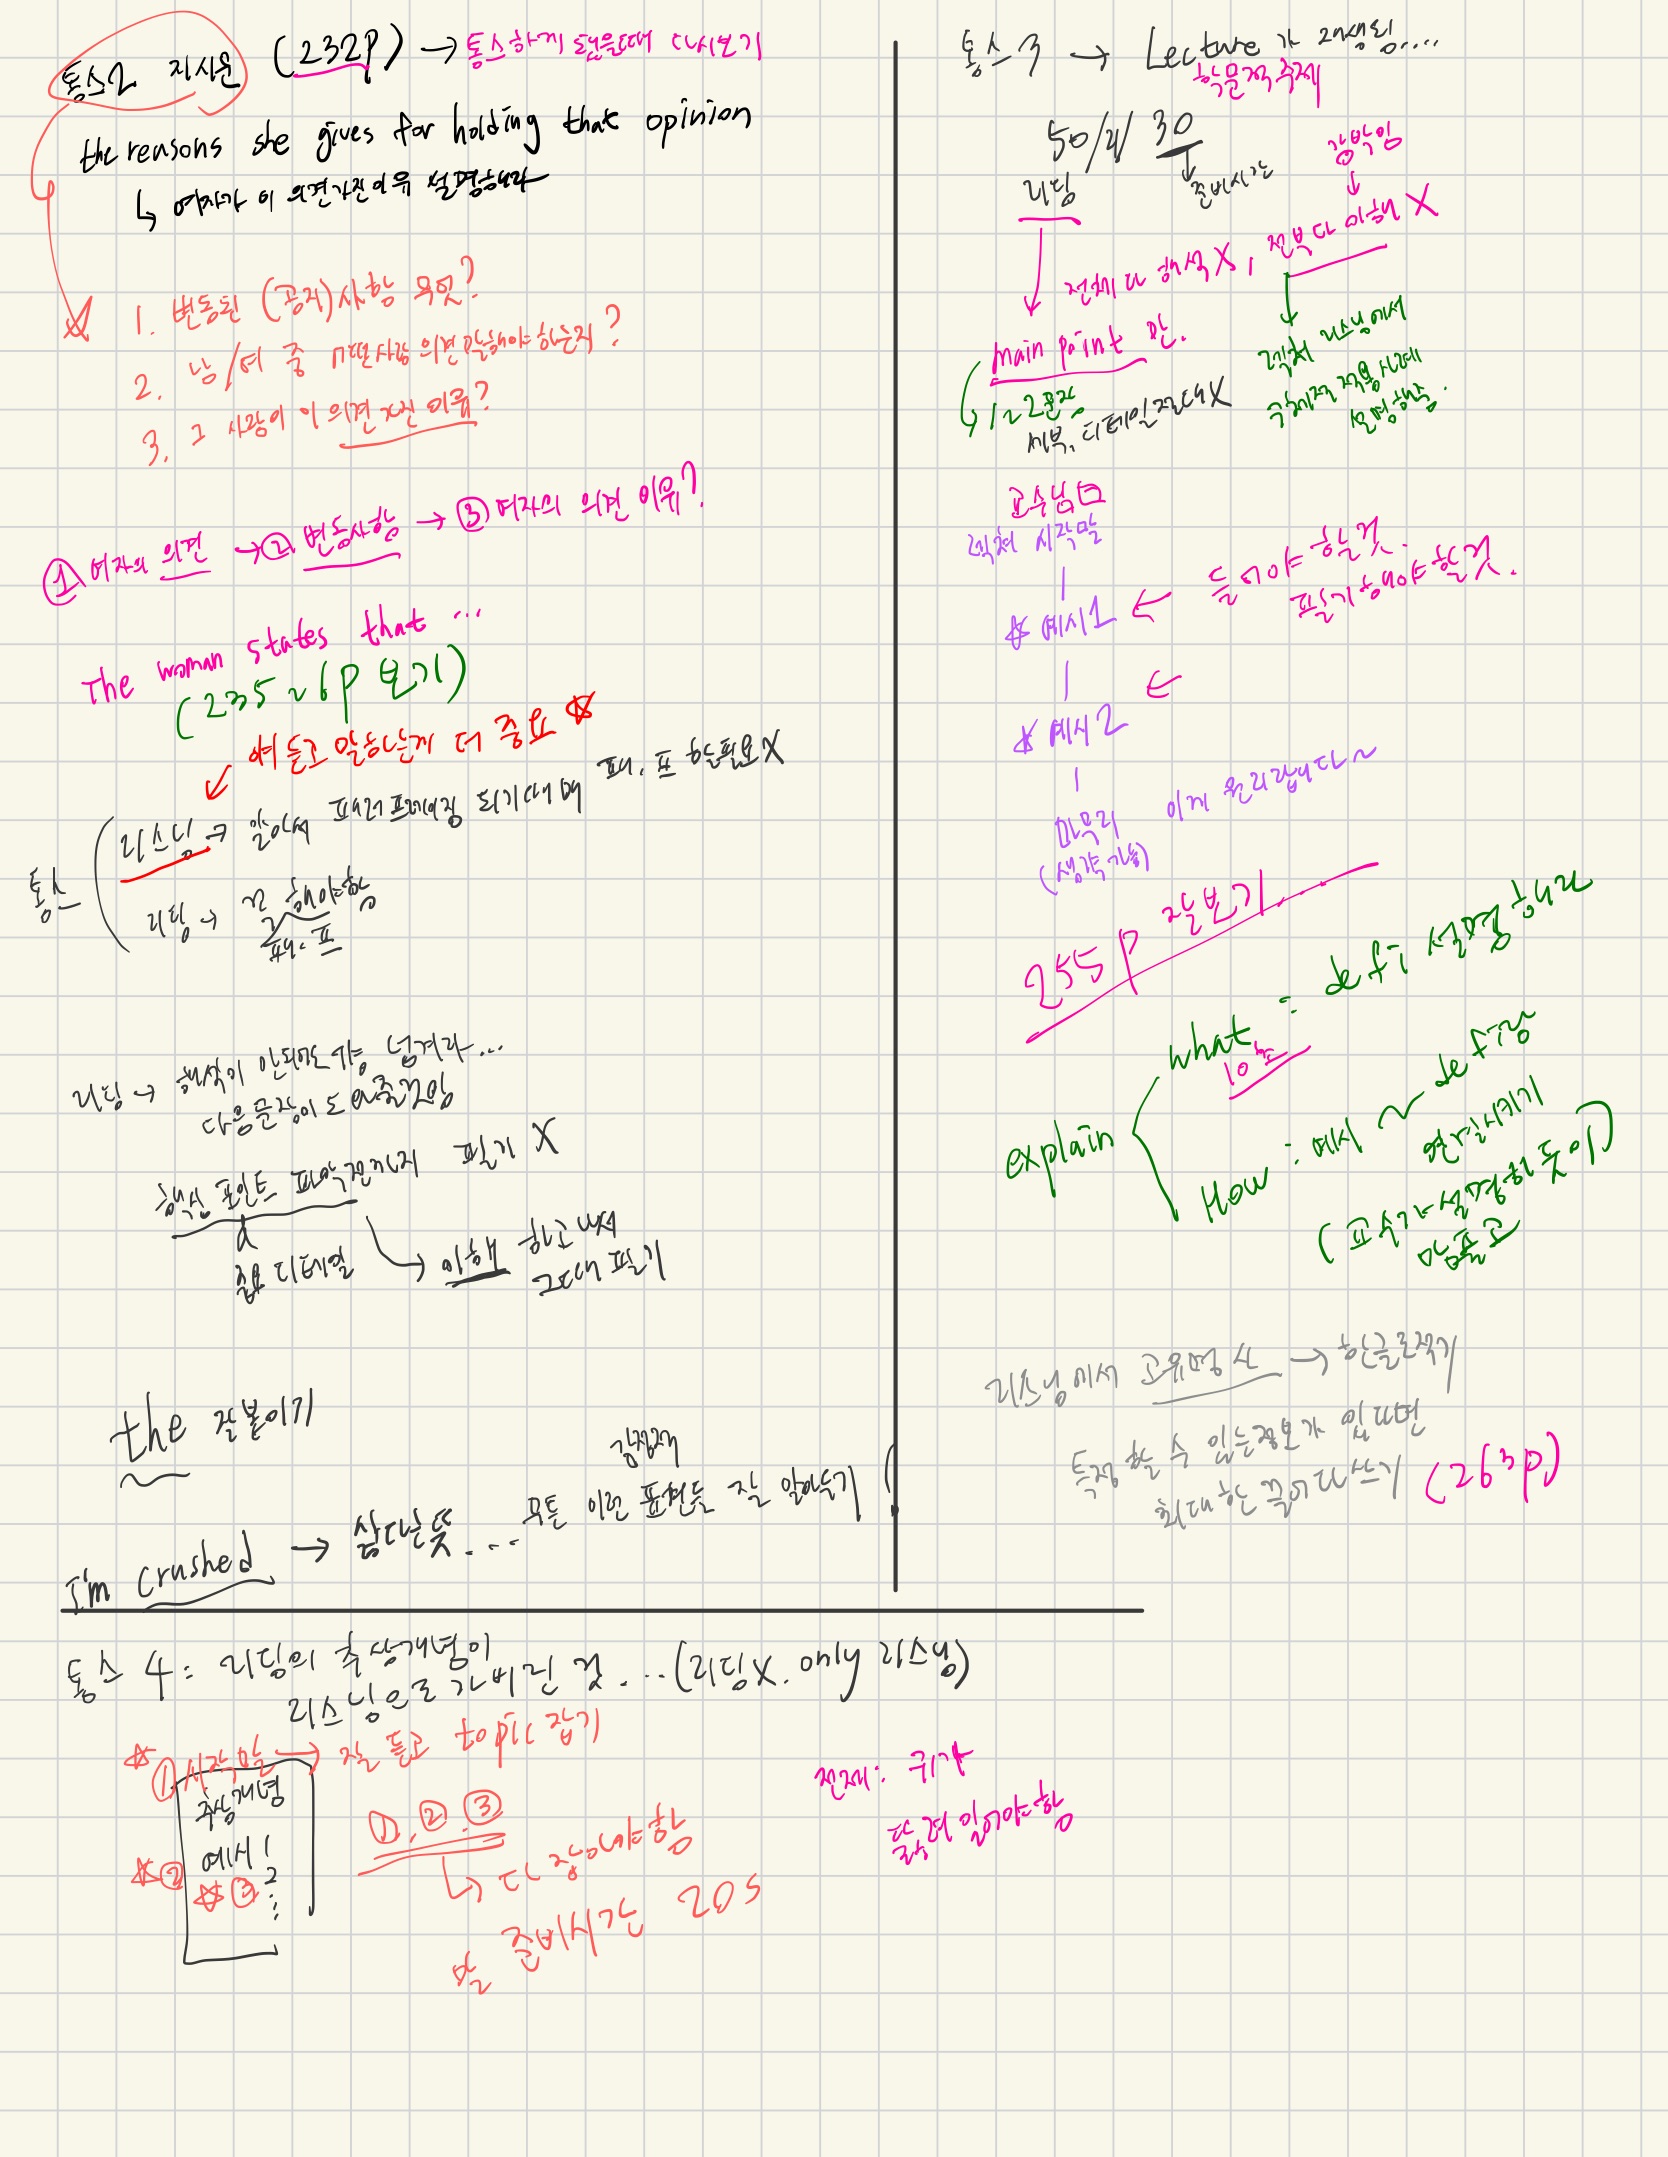 통스2 지시문 (232p) → 통스하게 됐을때 다시보기
the reasons she gives for holding that opinion
↳ 여자가 이 의견가진이유 설명해라
☆ 1. 변동된 (공지)사항 무엇?
2. 남/여 중 어떤사람 의견 말해야하는지?
3. 그 사람이 이 의견가진 이유?
① 여자의 의견 → ② 변동사항 → ③ 여자의 의견 이유?
The woman states that ...
(235~6p 보기)
잘 듣고 말하는게 더 중요 ☆
통스
리스닝 → 알아서 패러프레이징 되기때매 패.프 할필요X
리딩 → 꼭 해야함
패.프
리딩 → 해석이 안되어도 걍 넘겨라...
다음문장이 도와줄거임
핵심 포인트 파악전까지 필기 X
중요 디테일
→ 이해 하고나서
그때 필기
the 잘붙이기
감정적
I'm crushed → 싫다는뜻.... 무튼 이런 표현들 잘 알아듣기
통스3 → Lecture가 재생됨....
학문적주제
50/4/30
리딩
준비시간
강박임
전체 다 해석X, 전부다 이해 X
main point 만.
1~2문장
세부, 디테일절대X
렉쳐 리스닝에서
구체적 적용사례
설명해줌.
교수님曰
렉쳐 시작말
☆ 예시1 ← 들어야 할것.
필기해야할것.
☆ 예시2 ←
마무리 이게 원리랍니다~
(생략가능)
255p 잘보기.
explain
what : defi 설명해라
10초
How : 예시 ~ defi랑
연결시키기
(교수가 설명한 듯이)
말풀고
리스닝에서 고유명사 → 한글로적기
특정할 수 있는정보가 있다면
최대한 끌어다쓰기 (263p)
통스 4: 리딩의 추상개념이
리스닝으로 가버린 것...(리딩X. only 리스닝)
☆ ① 시작말 → 잘 듣고 topic 잡기
추상개념
☆② 예시 1
☆③ 2
①.②.③
↳ 다 잡아야함
준비시간 20s
전제: 귀가
뚫려있어야함